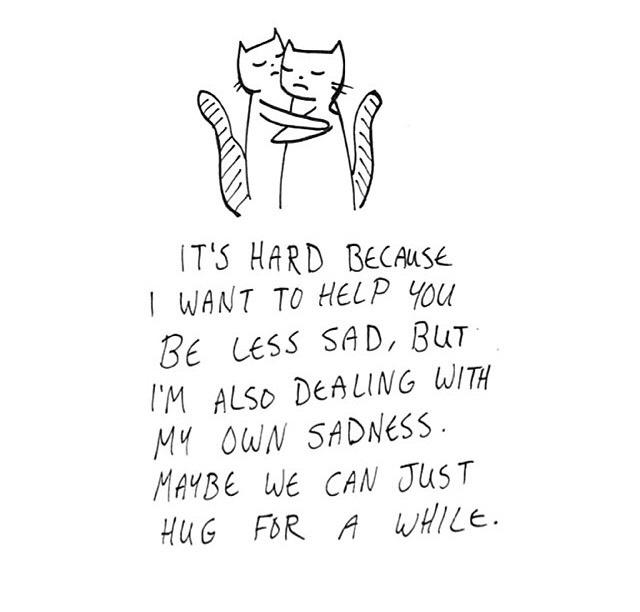 IT'S HARD BECAUSE
I WANT TO HELP YOU
BE LESS SAD, BUT
I'M ALSO DEALING WITH
MY OWN SADNESS.
MAYBE WE CAN JUST
HUG FOR A WHILE.